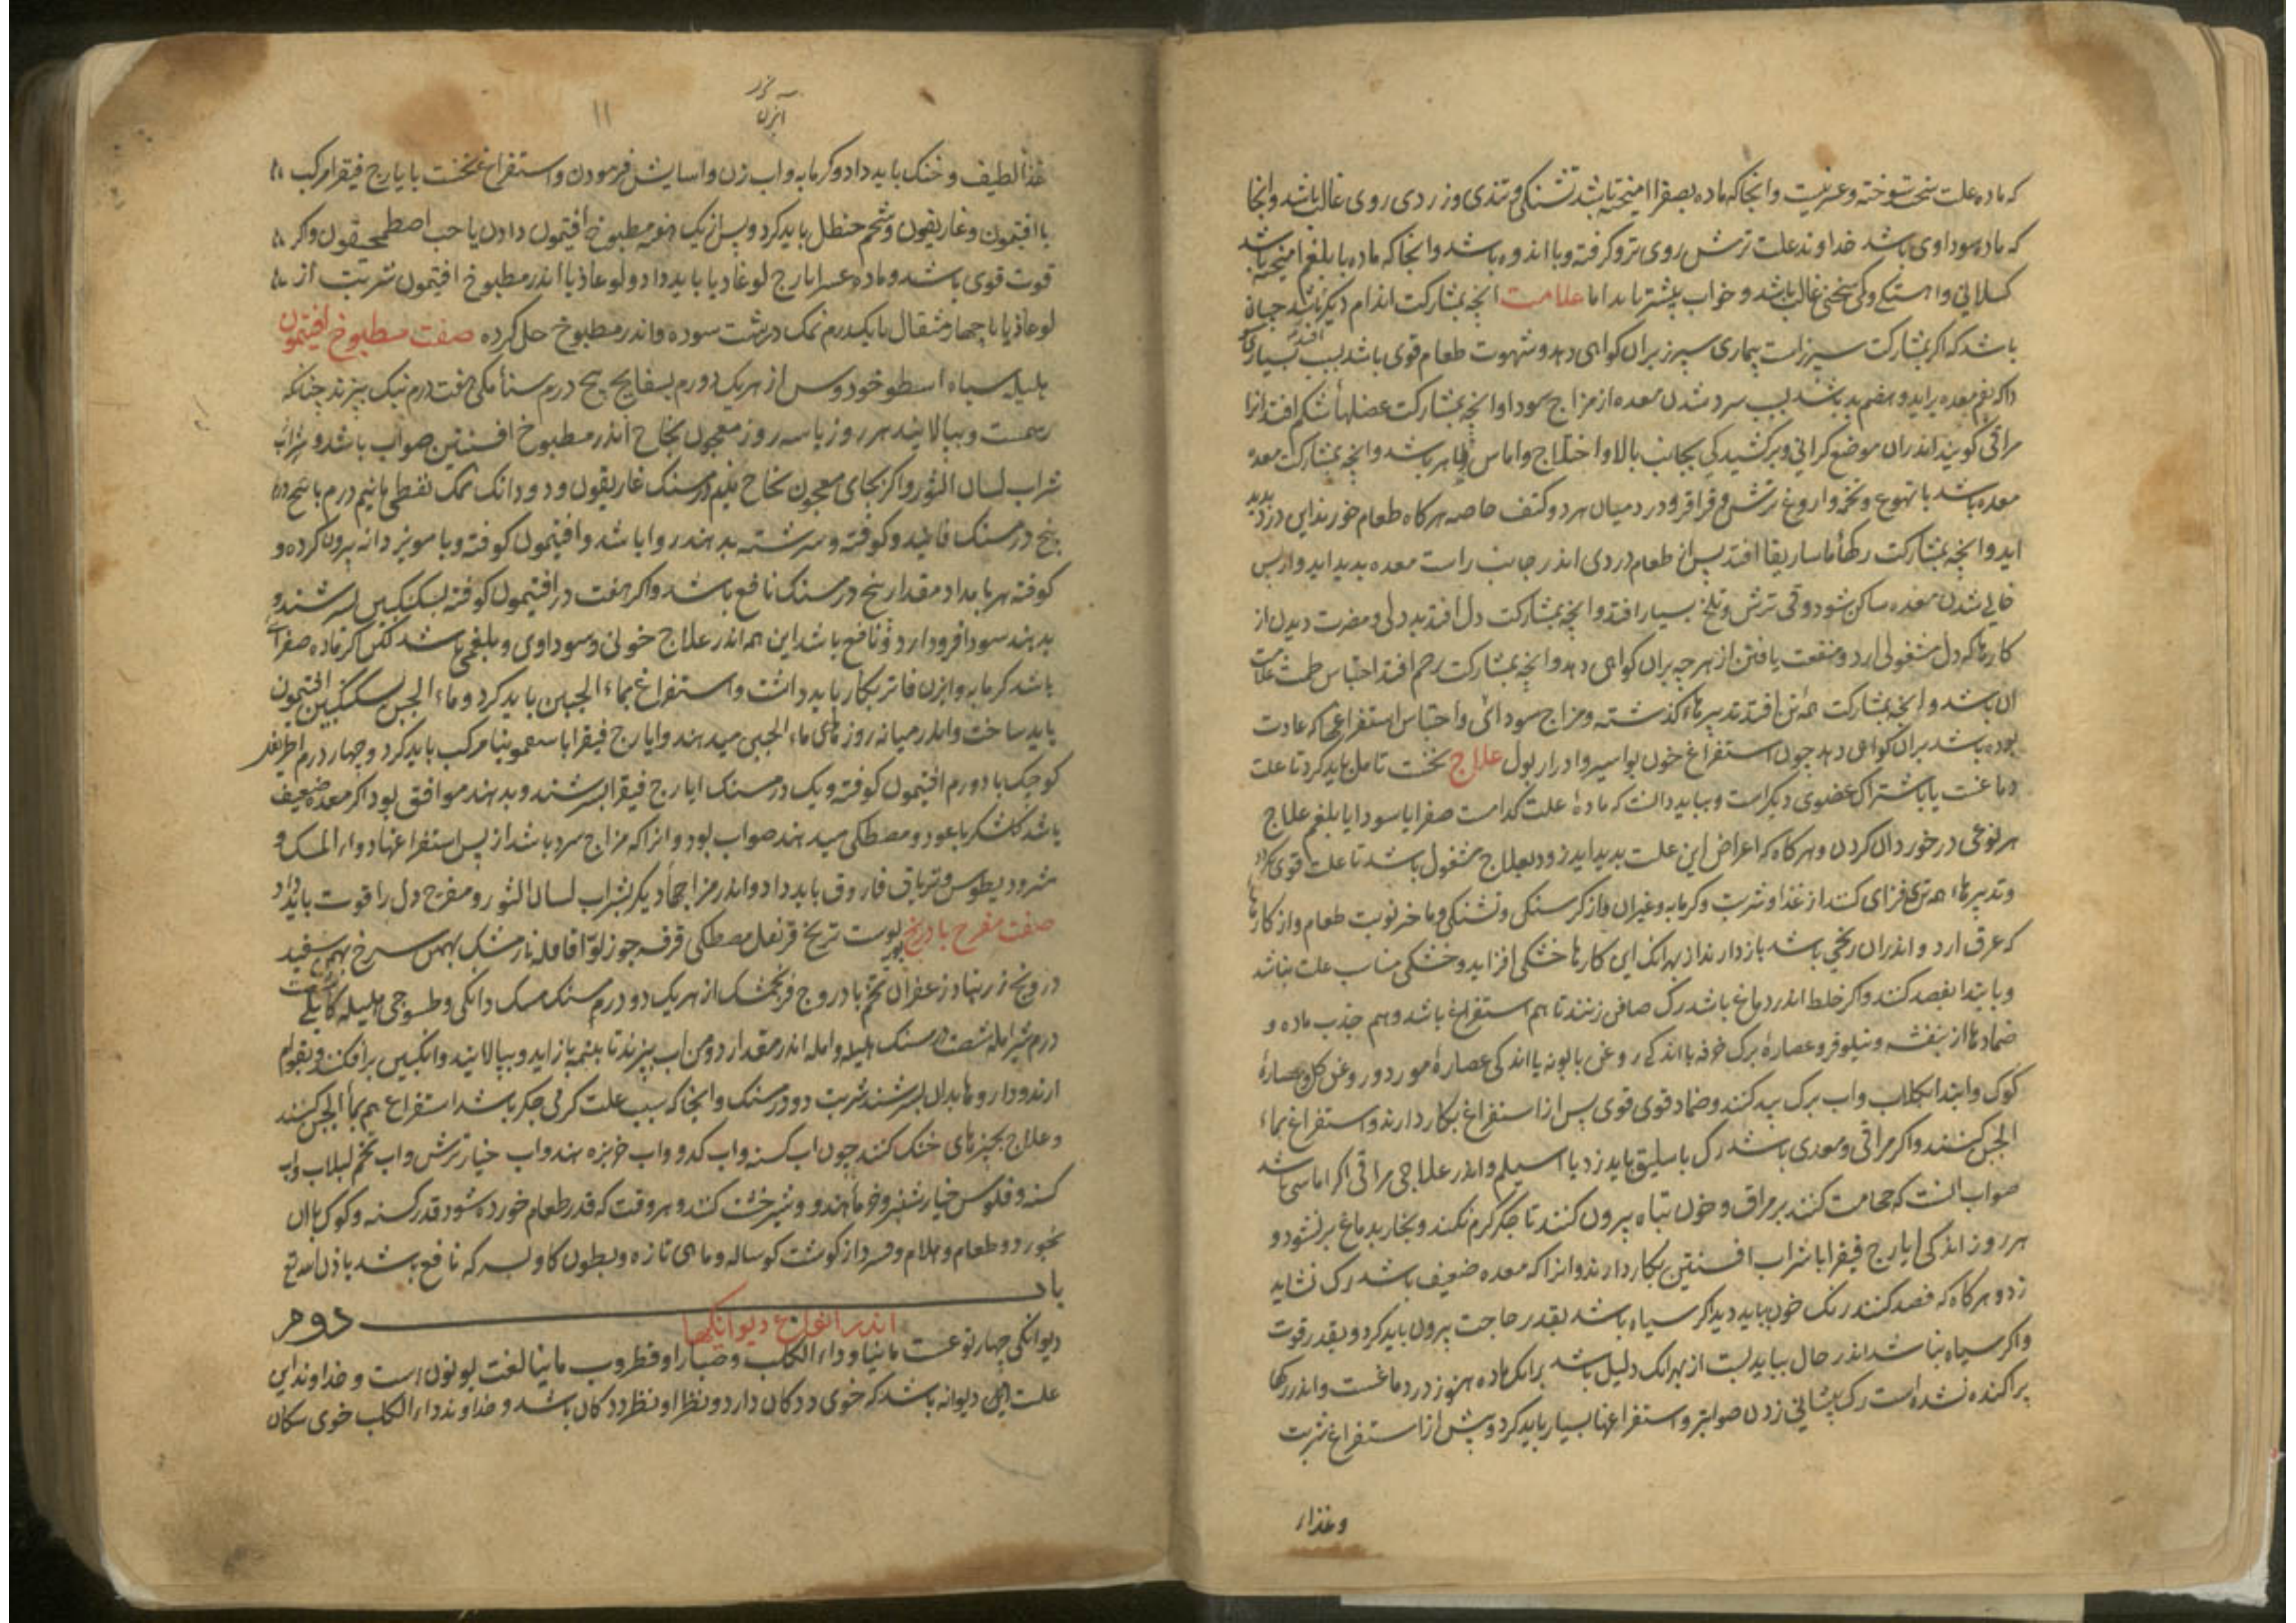 که ماده علت سخت سوخته و عسر نیست وانجا که ماده بصفرا امیخته باشد تشنکی و تندی و زردی روی غالب باشد وانجا
که ماده سوداوی باشد خداوند علت ترش روی تر و کرفته و با اندوه باشد وانجا که ماده با بلغم امیخته باشد
کسلانی و اهستکی و کم سخنی غالب باشد و خواب بیشتر یابد اما علامت انچه بمشارکت اندام دیکر باشد جنان
باشد که اکر بمشارکت سپرزست بیماری سپرز بران کواهی دهد و شهوت طعام قوی باشد بسبب بسیار
معده براید و هضم بد باشد بسبب سرد شدن معده از مزاج سودا وانچه بمشارکت عضلهأ شکم افتد انرا
مراقی کویند اندران موضع کرانی و برکشیدکی بجانب بالا و اختلاج و اماس ظاهر باشد وانچه بمشارکت معده
معده باشد با تهوع و تخمه و اروغ ترش و قراقر و درد میان هر دو کتف خاصه هرکاه طعام خورند این درد بدید
اید وانچه بمشارکت رکهأ ماساریقا افتد پس از طعام دردی اندر جانب راست معده بدید اید و از پس
خالی شدن معده ساکن شود و قی ترش و تلخ بسیار افتد وانچه بمشارکت دل افتد بددلی و مضرت دیدن از
کارها که دل مشغولی ارد و منفعت یافتن از هرچه بران کواهی دهد وانچه بمشارکت رحم افتد احتباس طمث علامت
ان باشد وانچه بمشارکت همه تن افتد تدبیرهاء کذشته و مزاج سودائی و احتباس استفراغی که عادت
بوده باشد بران کواهی دهد چون استفراغ خون بواسیر و ادرار بول علاج نخست تامل باید کرد تا علت
دماغست یا باشتراک عضوی دیکرست و بباید دانست که مادۀ علت کدامست صفرا یا سودا یا بلغم علاج
هر نوعی در خورد ان کردن و هرکاه که اعراض این علت بدید اید زود بعلاج مشغول باشد تا علت قوی نکردد
و تدبیرهاء همه تری فزای کند از غذا و شربت و کرمابه و غیران و از کرسنکی و تشنکی و تاخر نوبت طعام و از کارها
که عرق ارد و اندران رنجی باشد باز دارند از بهر انک این کارها خشکی افزاید و خشکی مناسب علت باشد
و بابتدا فصد کنند و اکر خلط اندر دماغ باشد رک صافن زنند تا هم استفراغ باشد و هم جذب ماده و
ضمادها از بنفشه و نیلوفر و عصارۀ برک خرفه با اندکی روغن بابونه یا اندکی عصارۀ مورد و روغن کل و عصارۀ
کوک و ابتدا بکلاب و اب برک بید کنند و ضماد قوی قوی پس از استفراغ بکار دارند و استفراغ بماء
الجبن کنند و اکر مراقی و معدی باشد رک باسلیق باید زد یا اسیلم و اندر علاج مراقی اکر اماسی باشد
صواب انست که حجامت کنند بر مراق و خون تباه بیرون کنند تا جکر کرم نکند و بخار بدماغ برنشود و
هر روز اندکی ایارج فیقرا با شراب افسنتین بکار دارند و انرا که معده ضعیف باشد رک نشاید
زد و هرکاه که فصد کنند رنک خون بباید دید اکر سیاه باشد بقدر حاجت بیرون باید کرد و بقدر قوت
و اکر سیاه نباشد اندر حال بباید بست از بهر انک دلیل باشد برانک ماده هنوز در دماغست و اندر رکها
پراکنده نشده است رک پیشانی زدن صوابتر و استفراغها بسیار باید کرد و پیش از استفراغ شربت
و غذاء
ابزن
۱۱
غذأ لطیف و خنک باید داد و کرمابه و اب زن و اسایش فرمودن و استفراغ نخست با یارج فیقرا مرکب
با افتیمون و غاریقون و شحم حنظل باید کرد و پس از یک دفعه مطبوخ افتیمون دادن یا حب اصطمحیقون و اکر
قوت قوی باشد و ماده عسر ایارج لوغاذیا باید داد و لوغاذیا اندر مطبوخ افتیمون شربت از
لوغاذیا تا چهار مثقال با یکدرم نمک درشت سوده و اندر مطبوخ حل کرده صفت مطبوخ افتیمون
هلیله سیاه اسطوخودوس از هر یک درم بسفایج پنج درم سنأ مکی هفت درم نیک بپزند چنانکه
رسمست و بپالایند هر روز یا سه روز معجون نجاح اندر مطبوخ افسنتین صواب باشد و شراب
شراب لسان الثور و اکر بجای معجون نجاح نیم درمسنک غاریقون و دو دانک نمک نفطی یا نیم درم با پنج درم
پنج درمسنک فانیذ و کوفته و سرشته بدهند روا باشد و افتیمون کوفته و با مویز دانه بیرون کرده و
کوفته هر بامداد مقدار پنج درمسنک نافع باشد و اکر هفت درم افتیمون کوفته بسکنکبین بسرشند و
بدهند سودا فرود ارد و نافع باشد این همه اندر علاج خونی و سوداوی و بلغمی باشد لکن اکر ماده صفرا
باشد کرمابه و ابزن فاتر بکار باید داشت و استفراغ بماء الجبن باید کرد و ماء الجبن بسکنکبین افتیمون
باید ساخت و اندر میانه روزهای ماء الجبن میدهند و ایارج فیقرا با سقمونیا مرکب باید کرد و چهار درم اطریفل
کوچک با دو درم افتیمون کوفته و یک درمسنک ایارج فیقرا بسرشند و بدهند موافق بود اکر معده ضعیف
باشد کلشکر با عود و مصطکی میدهند صواب بود و انرا که مزاج سرد باشد از پس استفراغها دواء المسک و
مثرودیطوس و تریاق فاروق باید داد و اندر مزاجهأ دیکر بشراب لسان الثور و مفرح دل را قوت باید داد
صفت مفرح بادرنج بویه پوست ترنج قرنفل مصطکی قرفه جوزبوا قاقله نارمشک بهمن سرخ بهمن سفید
درونج زرنباد زعفران تخم بادروج فرنجمشک از هر یک دو درمسنک مسک دانکی و طسوجی هلیله کابلی
درم شیر امله شصت درمسنک هلیله و امله اندر مقدار دو من اب بپزند تا بنیمه باز اید و بپالایند و انکبین برافکنند و بقوام
ارند و داروها بدان بسرشند شربت دو درمسنک و انجا که سبب علت کرمی جکر باشد استفراغ هم بمأ الجبن کنند
و علاج بچیزهای خنک کنند چون اب کسنه و اب کدو و اب خربزه هند و اب خیار ترش و اب تخم لبلاب و اب
کسنه و فلوس خیارشنبر و خرمأ هندو و شیرخشت کنند و هر وقت که قدر طعام خورده شود قدر کسنه و کوک با ان
بخورد و طعام و هلام و قسرد از کوشت کوساله و ماهی تازه و بطون کاو بسرکه نافع باشد باذن الله تع
باب دوم
اندر انواع دیوانکیها
دیوانکی چهار نوعست مانیا و داء الکلب و صبارا و قطروب مانیا لغت یونون است و خداوند این
علت این دیوانه باشد که خوی ددکان دارد و نظر او نظر ددکان باشد و خداوند داء الکلب خوی سکان